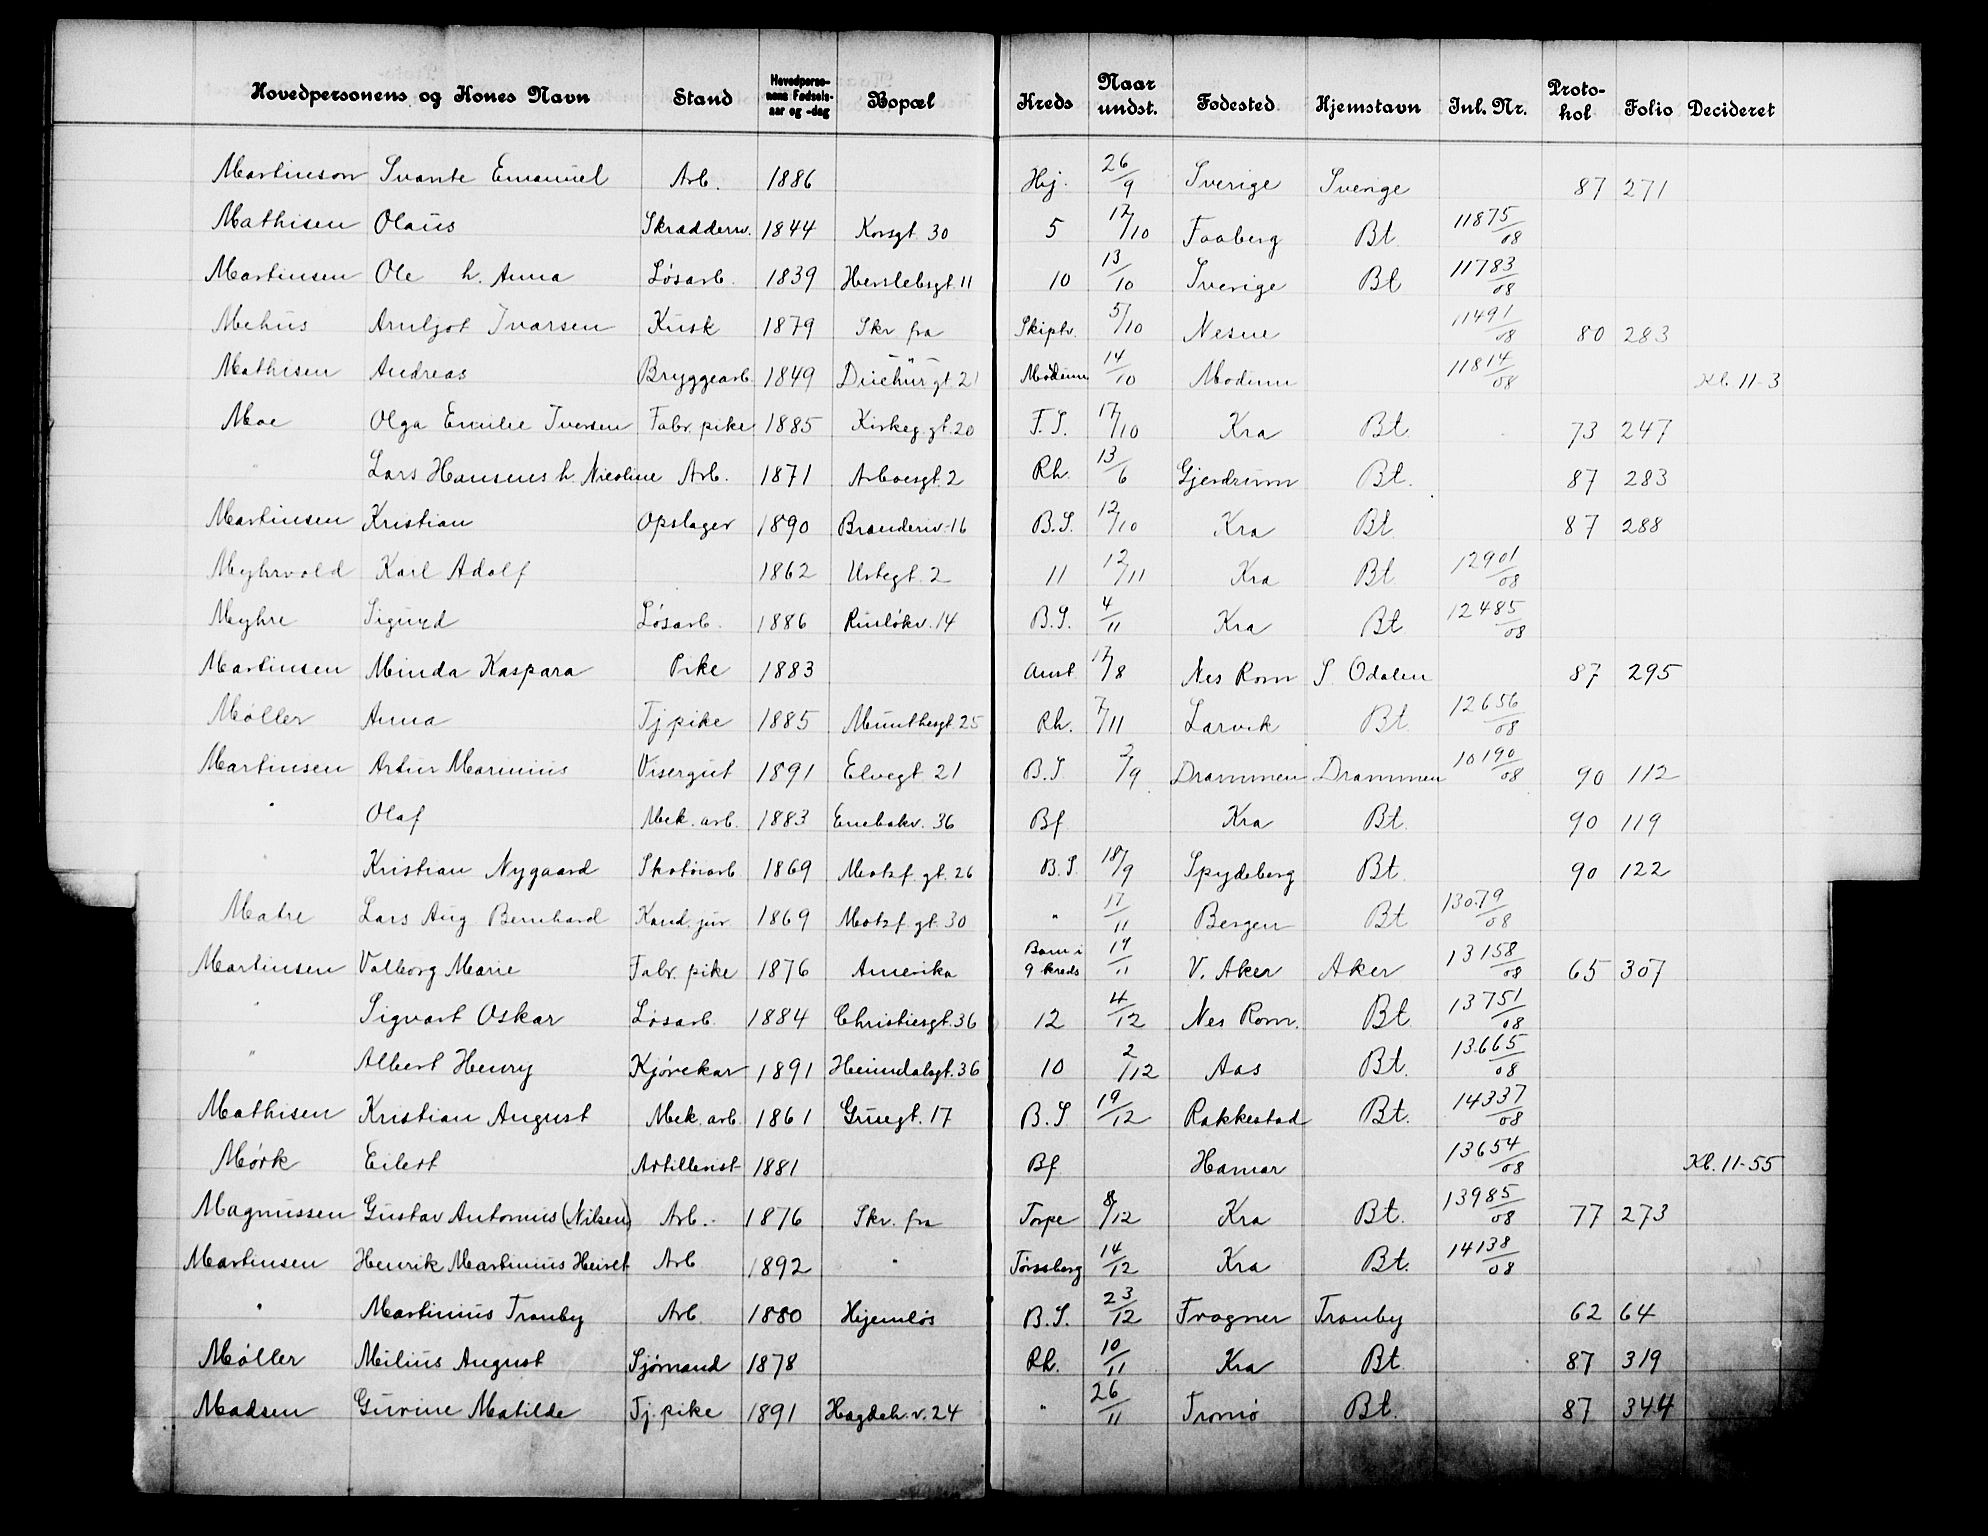 Hovedpersonens og Kones Navn | Stand | Hovedperso-nens Fødsels-aar og -dag | Bopæl | Kreds | Naar undst. | Fødested | Hjemstavn | Inl. Nr. | Proto-kol | Folio | Decideret
Martinson Svante Emanuel | Arb. | 1886 | | Hj. | 26/9 | Sverige | Sverige | | 87 | 271
Mathisen Olaus | Skrædderm. | 1844 | Korsgt. 30 | 5 | 12/10 | Faaberg | Bt. | 11875/08
Martinsen Ole h. Anna | Løsarb. | 1839 | Herslebsgt. 11 | 10 | 13/10 | Sverige | Bt | 11783/08
Mehus Arnljot Ivarsen | Kusk | 1879 | Skr. fra | Skiptv. | 5/10 | Nesne | | 11491/08 | 80 | 283
Mathisen Andreas | Bryggearb. | 1849 | gt. 21 | Modum | 14/10 | Modum | | 11814/08 | | | Kl. 11-3
Moe Olga Emilie Iversen | Fabr. pike | 1885 | Kirkeg. gt. 20 | F.S. | 17/10 | Kra | Bt. | | 73 | 247
" Lars Hansens h. Nicoline | Arb. | 1871 | Arboesgt. 2 | Rh. | 13/6 | Gjerdrum | Bt. | | 87 | 283
Martinsen Kristian | Opslager | 1890 | Brænderiv. 16 | B.S. | 12/10 | Kra | Bt. | | 87 | 288
Myhrvold Karl Adolf | | 1862 | Urtegt. 2 | 11 | 12/11 | Kra | Bt. | 12901/08
Myhre Sigurd | Løsarb. | 1886 | Ruseløkv. 14 | B.S. | 4/11 | Kra | Bt. | 12485/08
Martinsen Minda Kaspara | Pike | 1883 | | Amt | 17/8 | Nes Rom | S. Odalen | | 87 | 295
Møller Anna | Tj. pike | 1885 | Munthesgt. 25 | Rh. | 7/11 | Larvik | Bt. | 12656/08
Martinsen Artur Marinius | Visergut | 1891 | Elvegt. 21 | B.S. | 2/9 | Drammen | Drammen | 10190/08 | 90 | 112
" Olaf | Mek. arb. | 1883 | Enebakv. 36 | Bf. | | Kra | Bt. | | 90 | 119
" Kristian Nygaard | Skotøiarb. | 1869 | Motzf. gt. 26 | B.S. | 18/9 | Spydeberg | Bt. | | 90 | 122
Matre Lars Aug. Bernhard | Kand. jur. | 1869 | Motzf. gt. 30 | " | 17/11 | Bergen | Bt | 13079/08
Martinsen Valborg Marie | Fabr. pike | 1876 | Amerika | Barn i 9 kreds | 19/11 | V. Aker | Aker | 13158/08 | 65 | 307
" Sigvart Oskar | Løsarb. | 1884 | Christiesgt. 36 | 12 | 4/12 | Nes Rom. | Bt. | 13751/08
" Albert Henry | Kjørekar | 1891 | Heimdalsgt. 36 | 10 | 2/12 | Aas | Bt. | 13665/08
Mathisen Kristian August | Mek. arb. | 1861 | Gruegt. 17 | B.S. | 19/12 | Rakkestad | Bt. | 14337/08
Mørk Eilert | Artillerist | 1881 | | Bf. | | Hamar | | 13654/08 | | | Kl. 11-55
Magnussen Gustav Antonius (Nilsen) | Arb. | 1876 | Skr. fra | Torpe | 8/12 | Kra | Bt. | 13985/08 | 77 | 273
Martinsen Henrik Martinius | Arb | 1892 | " | Tønsberg | 14/12 | Kra | Bt. | 14138/08
" Martinius Tranby | Arb. | 1880 | Hjemløs | B.S. | 23/12 | Frogner | Tranby | | 62 | 64
Møller Milius August | Sjømand | 1878 | | Rh. | 10/11 | Kra | Bt. | | 87 | 319
Madsen Gurine Matilde | Tj. pike | 1891 | Hagdeh. v. 24 | " | 26/11 | Tromø | Bt. | | 87 | 344